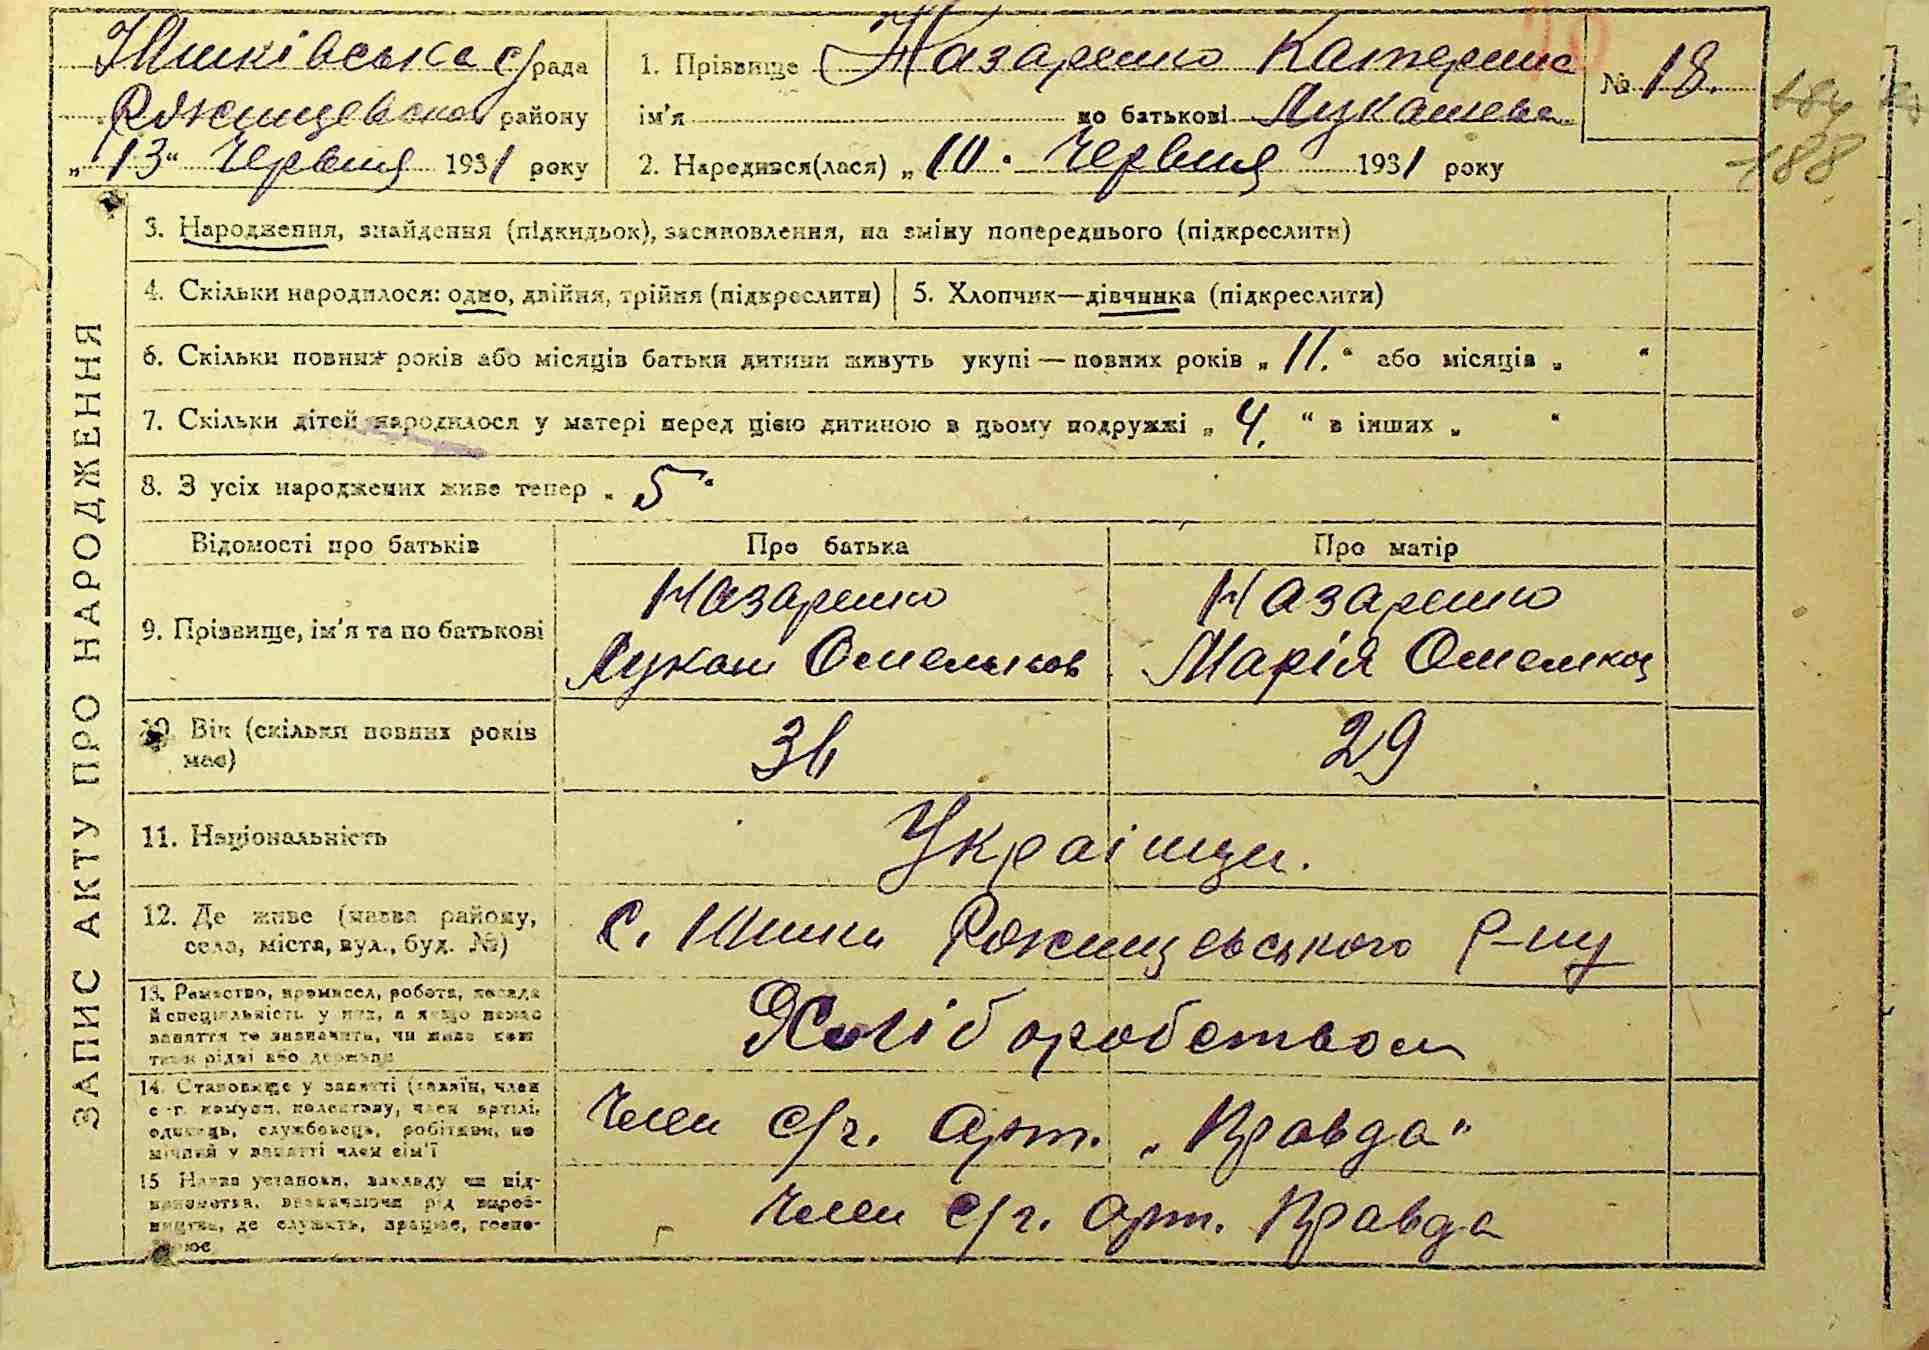 Шишківська с/рада
1. Прізвище Назаренко Катерина
№ 18.
району
ім'я по батькові Лукашева
184
188
„13" Червня 1931 року
2. Народився(лася) „10" Червня 1931 року
ЗАПИС АКТУ ПРО НАРОДЖЕННЯ
3. Народження, знайдення (підкидьок), засиновлення, на зміну попереднього (підкреслити)
4. Скільки народилося: одно, двійня, трійня (підкреслити)
5. Хлопчик—дівчинка (підкреслити)
6. Скільки повних років або місяців батьки дитини живуть укупі — повних років „11." або місяців „ "
7. Скільки дітей народилося у матері перед цією дитиною в цьому подружжі „4." в інших „ "
8. З усіх народжених живе тепер „5"
Відомості про батьків
Про батька
Про матір
9. Прізвище, ім'я та по батькові
Назаренко
Лукаш Омельков
Назаренко
Марія Омелков
10. Вік (скільки повних років має)
36
29
11. Національність
Українци.
12. Де живе (назва району,
села, міста, вул., буд. №)
с. Шишки р-ну
13. Ремество, промисел, робота, посада
й спеціяльність у них, а якщо немає
заняття то зазначити, чи живе кош
тами рідні або держави
Хліборобством
14. Становище у занятті (хазяїн, член
с.-г. комуни, колективу, член артілі,
одинець, службовець, робітник, по
мічний у занятті член сім'ї
Член с/г. арт. „Правда"
15 Назва установи, закладу чи під-
приємства, визначаючи рід вироб-
ництва, де служить, працює, госпо-
рює
Член с/г. арт. Правда